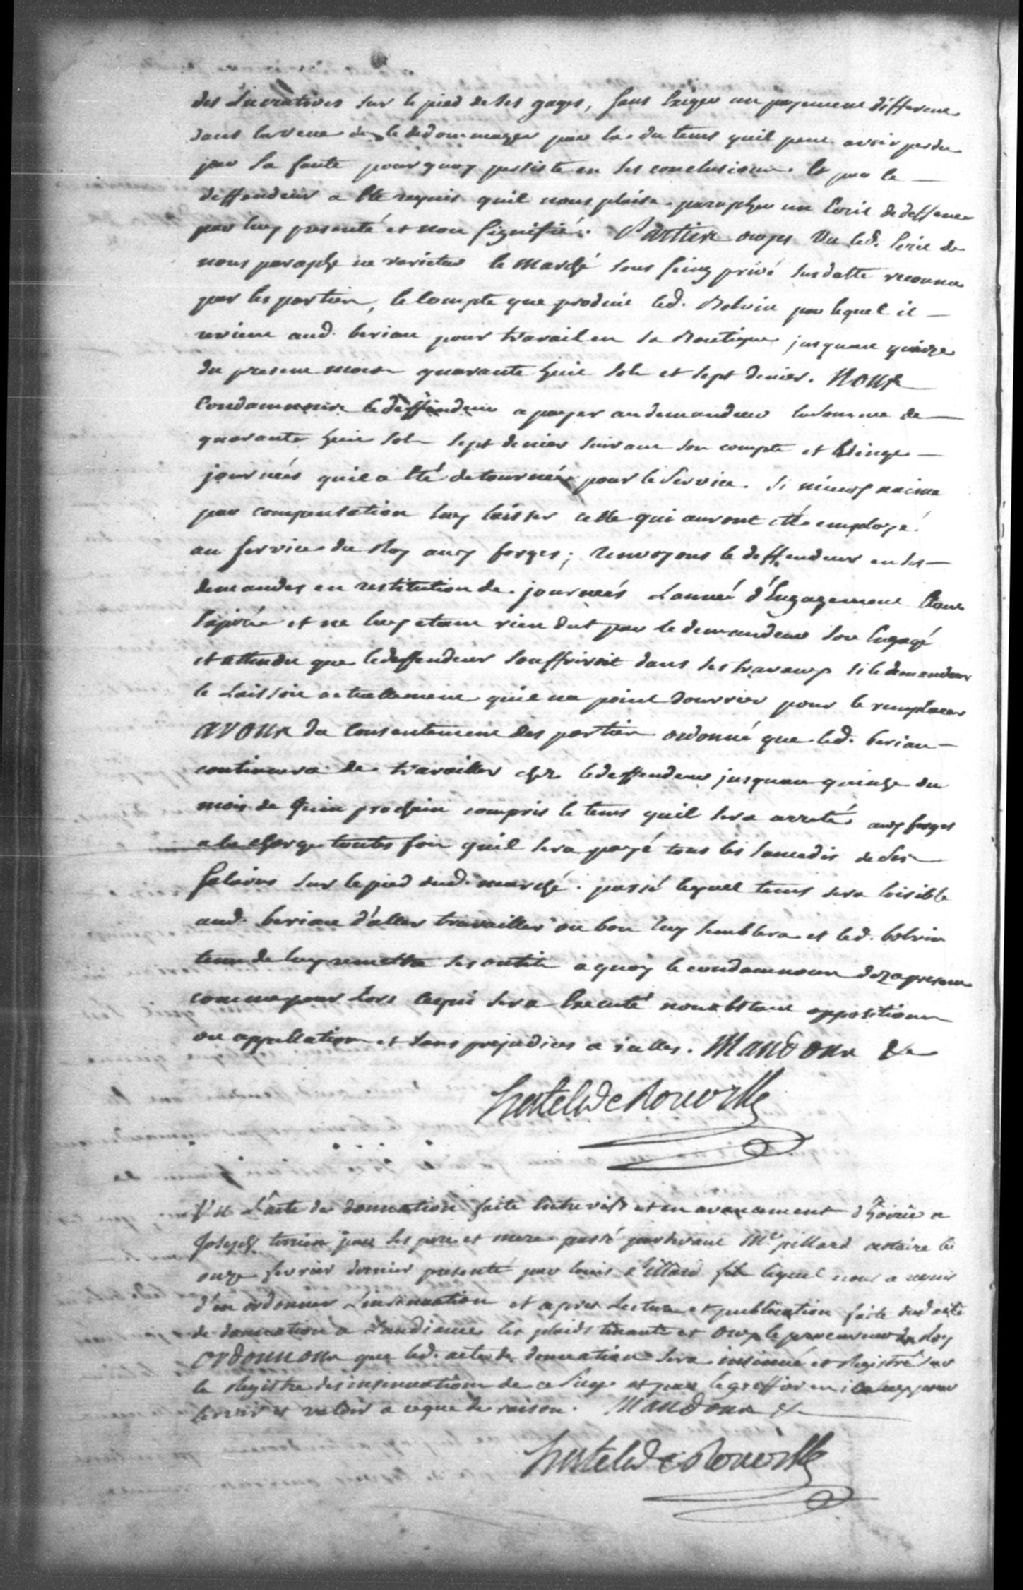 des lucratives sur le pied de ses gages, sans exiger un payement different
dans la veue de le dedommager par la du tems quil peut avoir perdu
par sa faute pourquoy persiste en ses conclusions. Et par le
deffendeur a ete requis quil nous plaise parapher un Ecrit de deffenses
par luy presenté et non signifié. Parties ouyes Vu led. Ecrit de
nous paraphé ne varietur le marché sous seing privé susdatté reconnu
par les parties, le Compte que produit led. Bolvin par lequel il
revient aud. beriau pour travail en sa Boutique jusquau quinze
du present mois quarante huit sols et sept deniers. Nous
Condamnons le deffendeur a payer au demandeur la somme de
quarante huit sols sept deniers suivant son compte et
journées quil a eté detourné pour le service. Si mieux naime
par compensation luy laisser celle qui auront eté employé
au service du Roy aux forges; renvoyons le deffendeur en ses
demandes en restitution de journées L'année d'Engagement étant
Expirée et ne luy etant rien dut par le demandeur son Engagé
et attendu que le deffendeur souffriroit dans ses travaux si le demandeur
le laissoit actuellement quil na point douvrier pour le remplacer
avons du Consentement des parties ordonné que led. beriau
continuera de travailler chez le deffendeur jusquau quinze du
mois de Juin prochain compris le tems quil sera arreté aux forges
a la charge toutes fois quil sera payé tous les samedis de ses
salaires sur le pied dud. marché. passé lequel tems sera loisible
aud. beriau d'aller travailler ou bon luy semblera et led. bolvin
tenu de luy remettre ses outils a quoy le condamnons dez a present
comme pour lors Ce qui sera Executé nonobstant oppositions
ou appellations et sans prejudices a icelles. Mandons &c
Hertel de Rouville
Vu L'acte de donnation faite Entre vifs et en avancement d'hoirie a
Joseph par ses pere et mere passé pardevant Me pillard notaire le
onze fevrier dernier presenté par louis Pillard fils lequel nous a requis
d'en ordonner L'insinuation et apres Lecture et publication faite dud acte
de donnation a L'audiance les plaids tenants et ouy le procureur du Roy
Ordonnons que led. acte de donnation sera insinué et Registré sur
le Registre des insinuations de ce siege par le greffier en iceluy pour
servir et valoir a ce que de raison. Mandons &c
Hertel de Rouville